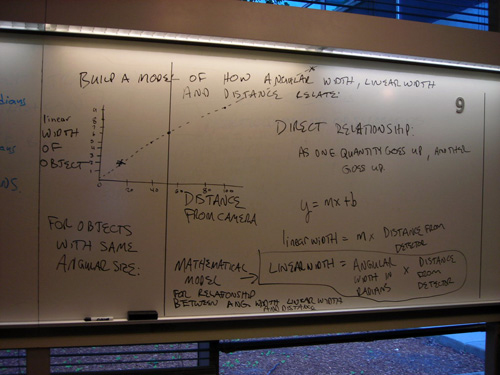 BUILD A MODEL OF HOW ANGULAR WIDTH, LINEAR WIDTH
AND DISTANCE RELATE:
9
linear
WIDTH
OF
OBJECT
20 40 60 80 100
DISTANCE
FROM CAMERA
FOR OBJECTS
WITH SAME
ANGULAR SIZE:
DIRECT RELATIONSHIP:
AS ONE QUANTITY GOES UP, ANOTHER
GOES UP.
y = mx + b
linear WIDTH = m x DISTANCE FROM
DETECTOR
MATHEMATICAL
MODEL
FOR RELATIONSHIP
BETWEEN ANG. WIDTH, LINEAR WIDTH
AND DISTANCE
LINEAR WIDTH = ANGULAR
WIDTH IN
RADIANS
x DISTANCE
FROM
DETECTOR
dians
NS.